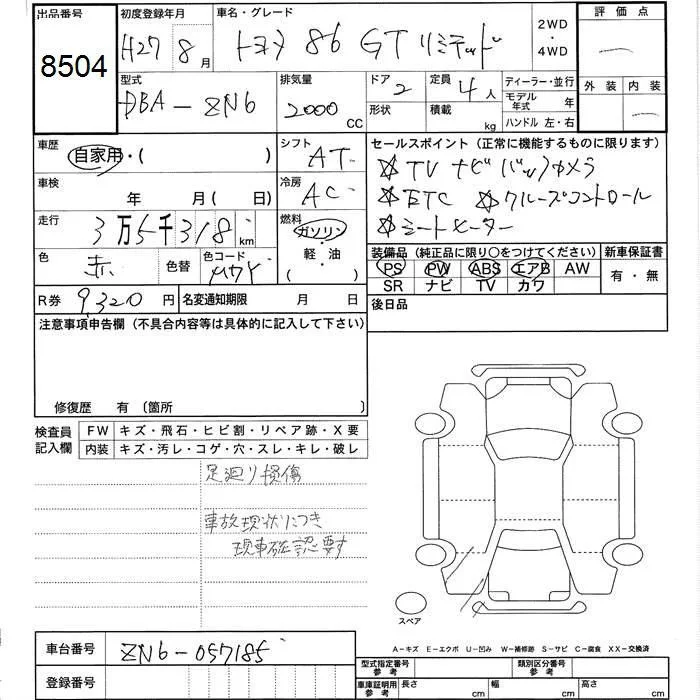 出品番号 初度登録年月 車名・グレード 2WD・4WD 評価点
8504 H27 8月 トヨタ 86 GT リミテッド
型式 排気量 ドア 定員 ディーラー・並行 外装 内装
DBA-ZN6 2000 CC 2 4人 モデル年式 年
形状 積載 kg ハンドル 左・右
車歴 自家用・( ) シフト AT セールスポイント（正常に機能するものに限ります）
☆TV ナビ バックカメラ
車検 年 月(日) 冷房 AC ☆ETC ☆クルーズコントロール
☆シートヒーター
走行 3万5千318km 燃料 ガソリン・軽油・( )
色 赤 色替 色コード
装備品（純正品に限り〇をつけてください） 新車保証書
PS PW ABS エアB AW 有・無
SR ナビ TV カワ
R券 9,320円 名変通知期限 月 日 後日品
注意事項申告欄（不具合内容等は具体的に記入して下さい）
修復歴 有 〔箇所 〕
検査員記入欄 FW キズ・飛石・ヒビ割・リペア跡・X要
内装 キズ・汚レ・コゲ・穴・スレ・キレ・破レ
足廻り損傷
事故現状につき
現車確認要す
スペア
A-キズ E-エクボ U-凹み W-補修跡 S-サビ C-腐食 XX-交換済
車台番号 ZN6-057185
型式指定番号 参考 類別区分番号 参考
登録番号 車庫証明用 参考 長さ cm 幅 cm 高さ cm